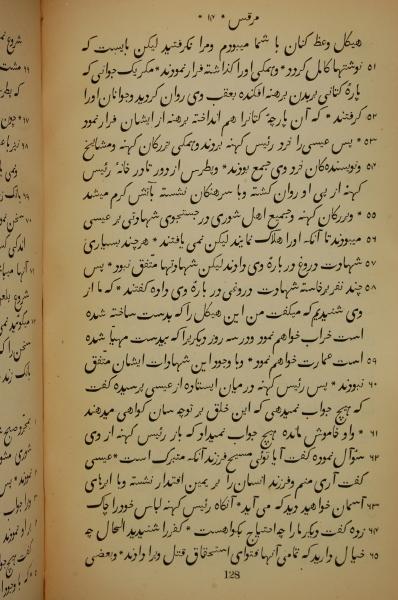 مرقس * ۱۴ *
هیکل وعظ کنان با شما میبودم ومرا نگرفتید لیکن بایست که
۵۱ نوشتها کامل گردد * وهمگی اورا گذاشته فرار نمودند * مگر یک جوانی که
پارهٔ کتانی بر بدن برهنه افکنده بعقب وی روان گردید وجوانان اورا
۵۲ گرفتند * که آن پارچهٔ کتانرا هم انداخته برهنه از ایشان فرار نمود
۵۳ * پس عیسی را نزد رئیس کهنه بردند وهمگی بزرگان کهنه ومشایخ
۵۴ ونویسنده‌کان نزد وی جمع بودند * وپطرس از دور تا در خانهٔ رئیس
کهنه از پی او روان گشته وبا سرهنگان نشسته بآتش گرم میشد
۵۵ * وبزرگان کهنه وجمیع اهل شوری در جستجوی شهادتی بر عیسی
۵۶ میبودند تا آنکه اورا هلاک نمایند لیکن نمی یافتند * هر چند بسیاری
۵۷ شهادت دروغ در بارهٔ وی دادند لیکن شهادتها متفق نبود * پس
۵۸ چند نفر برخاسته شهادت دروغی در بارهٔ وی داده گفتند * که ما از
وی شنیدیم که میگفت من این هیکل را که بدست ساخته شده
است خراب خواهم نمود ودر سه روز دیگریرا که بیدست مهیا شده
۵۹ است عمارت خواهم نمود * وبا وجود این شهادات ایشان متفق
۶۰ نبودند * پس رئیس کهنه در میان ایستاده از عیسی پرسیده گفت
که هیچ جواب نمیدهی که این خلق بر تو چه سان گواهی میدهند
۶۱ * واو خاموش مانده هیچ جواب نمیداد که باز رئیس کهنه از وی
۶۲ سئوال نموده گفت آیا توئی مسیح فرزند آنکه متبرک است * عیسی
گفت آری منم وفرزند انسان را بر یمین اقتدار نشسته وبا ابرهای
۶۳ آسمان خواهید دید که می آید * آنگاه رئیس کهنه لباس خود را چاک
۶۴ زده گفت دیگر ما را چه احتیاج بگواهست * کفر را شنیدید الحال چه
۶۵ خیال دارید که تمامی آنها فتوای استحقاق قتل ویرا دادند * وبعضی
128